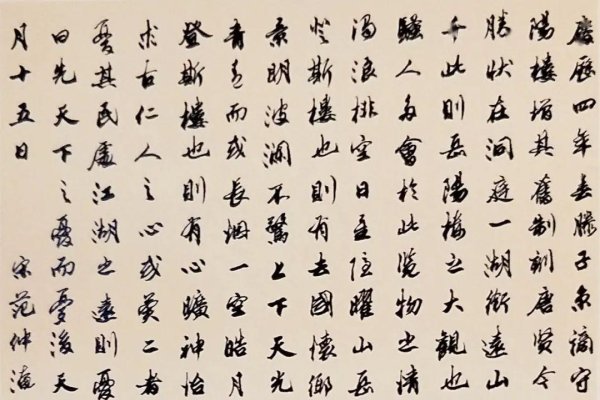 慶歷四年春滕子京謫守
陽樓增其舊制刻唐賢今
勝狀在洞庭一湖銜遠山
千此則岳陽樓之大觀也
騷人多會於此覽物之情
濁浪排空日星隱曜山岳
登斯樓也則有去國懷鄉
景明波瀾不驚上下天光
青青而或長烟一空皓月
登斯樓也則有心曠神怡
求古仁人之心或異二者
憂其民處江湖之遠則憂
曰先天下之憂而憂後天
月十五日 宋范仲淹